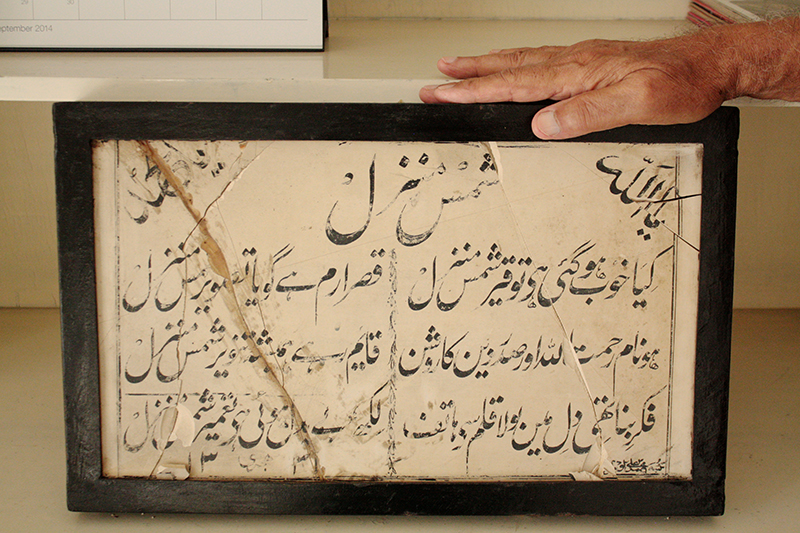 29 30
eptember 2014
یا اللہ
شمس منزل
کیا خوب ہو گئی ہی توقیر شمس منزل قصر ارم ہے گویا تصویر شمس منزل
ہو نام رحمت اللہ اور صدر دین کا روشن قایم رہے ہمیشہ تنویر شمس منزل
فکر بنا تھی دل مین بولا قلم ہاتف لکھ ہوئی ہی تعمیر شمس منزل